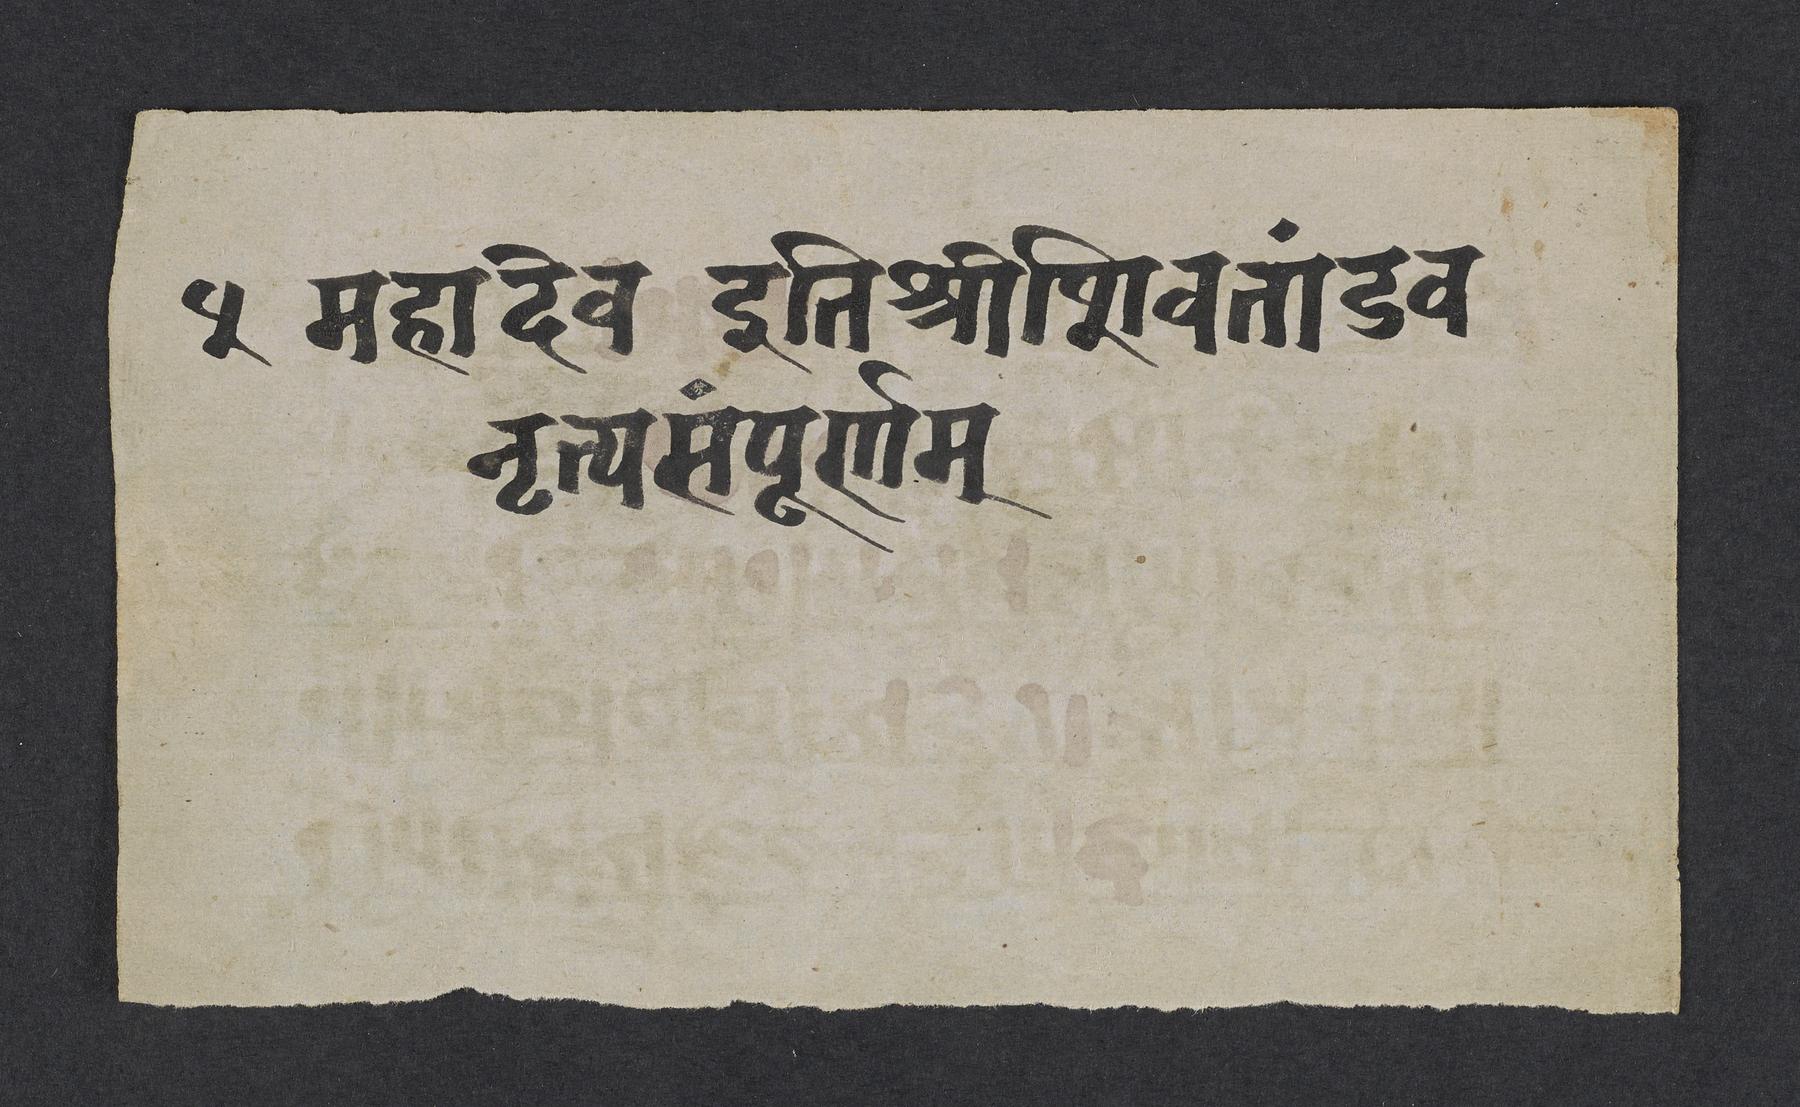 ५ महादेव इतिश्रीशिवतांडव
नृत्यसंपूर्णम्